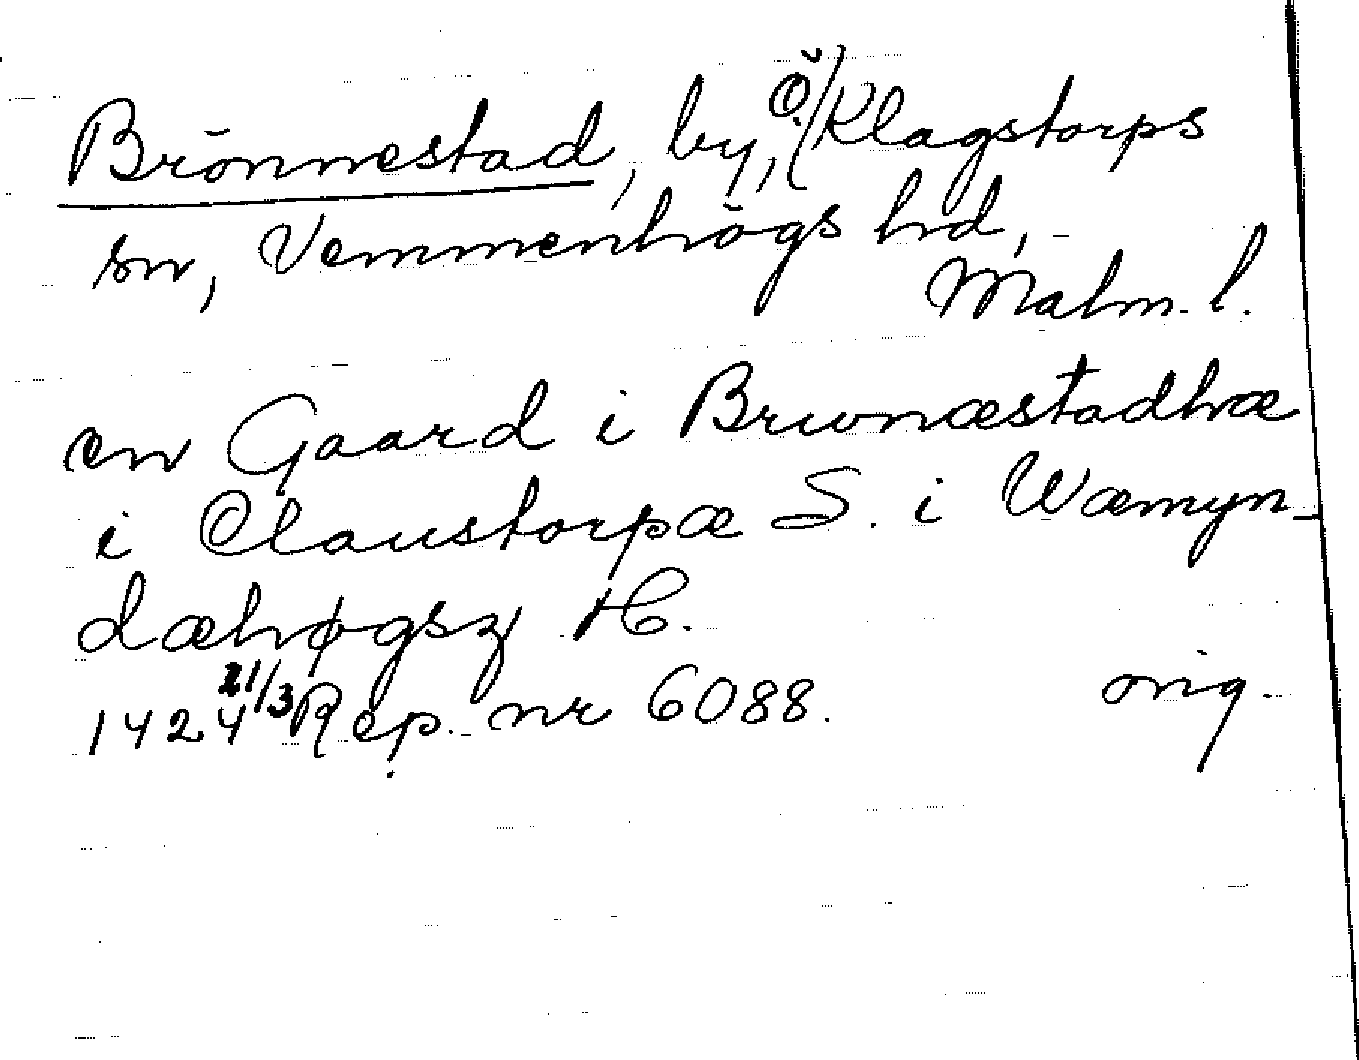 Brönnestad, by, Ö. Klagstorps
sn, Vemmenhögs hd,
Malm. l.
en Gaard i Brwnæstadhæ
i Claustorpæ S. i Wæmyn-
dæhøgsz H.
1424 21/3 Rep. nr 6088. orig.